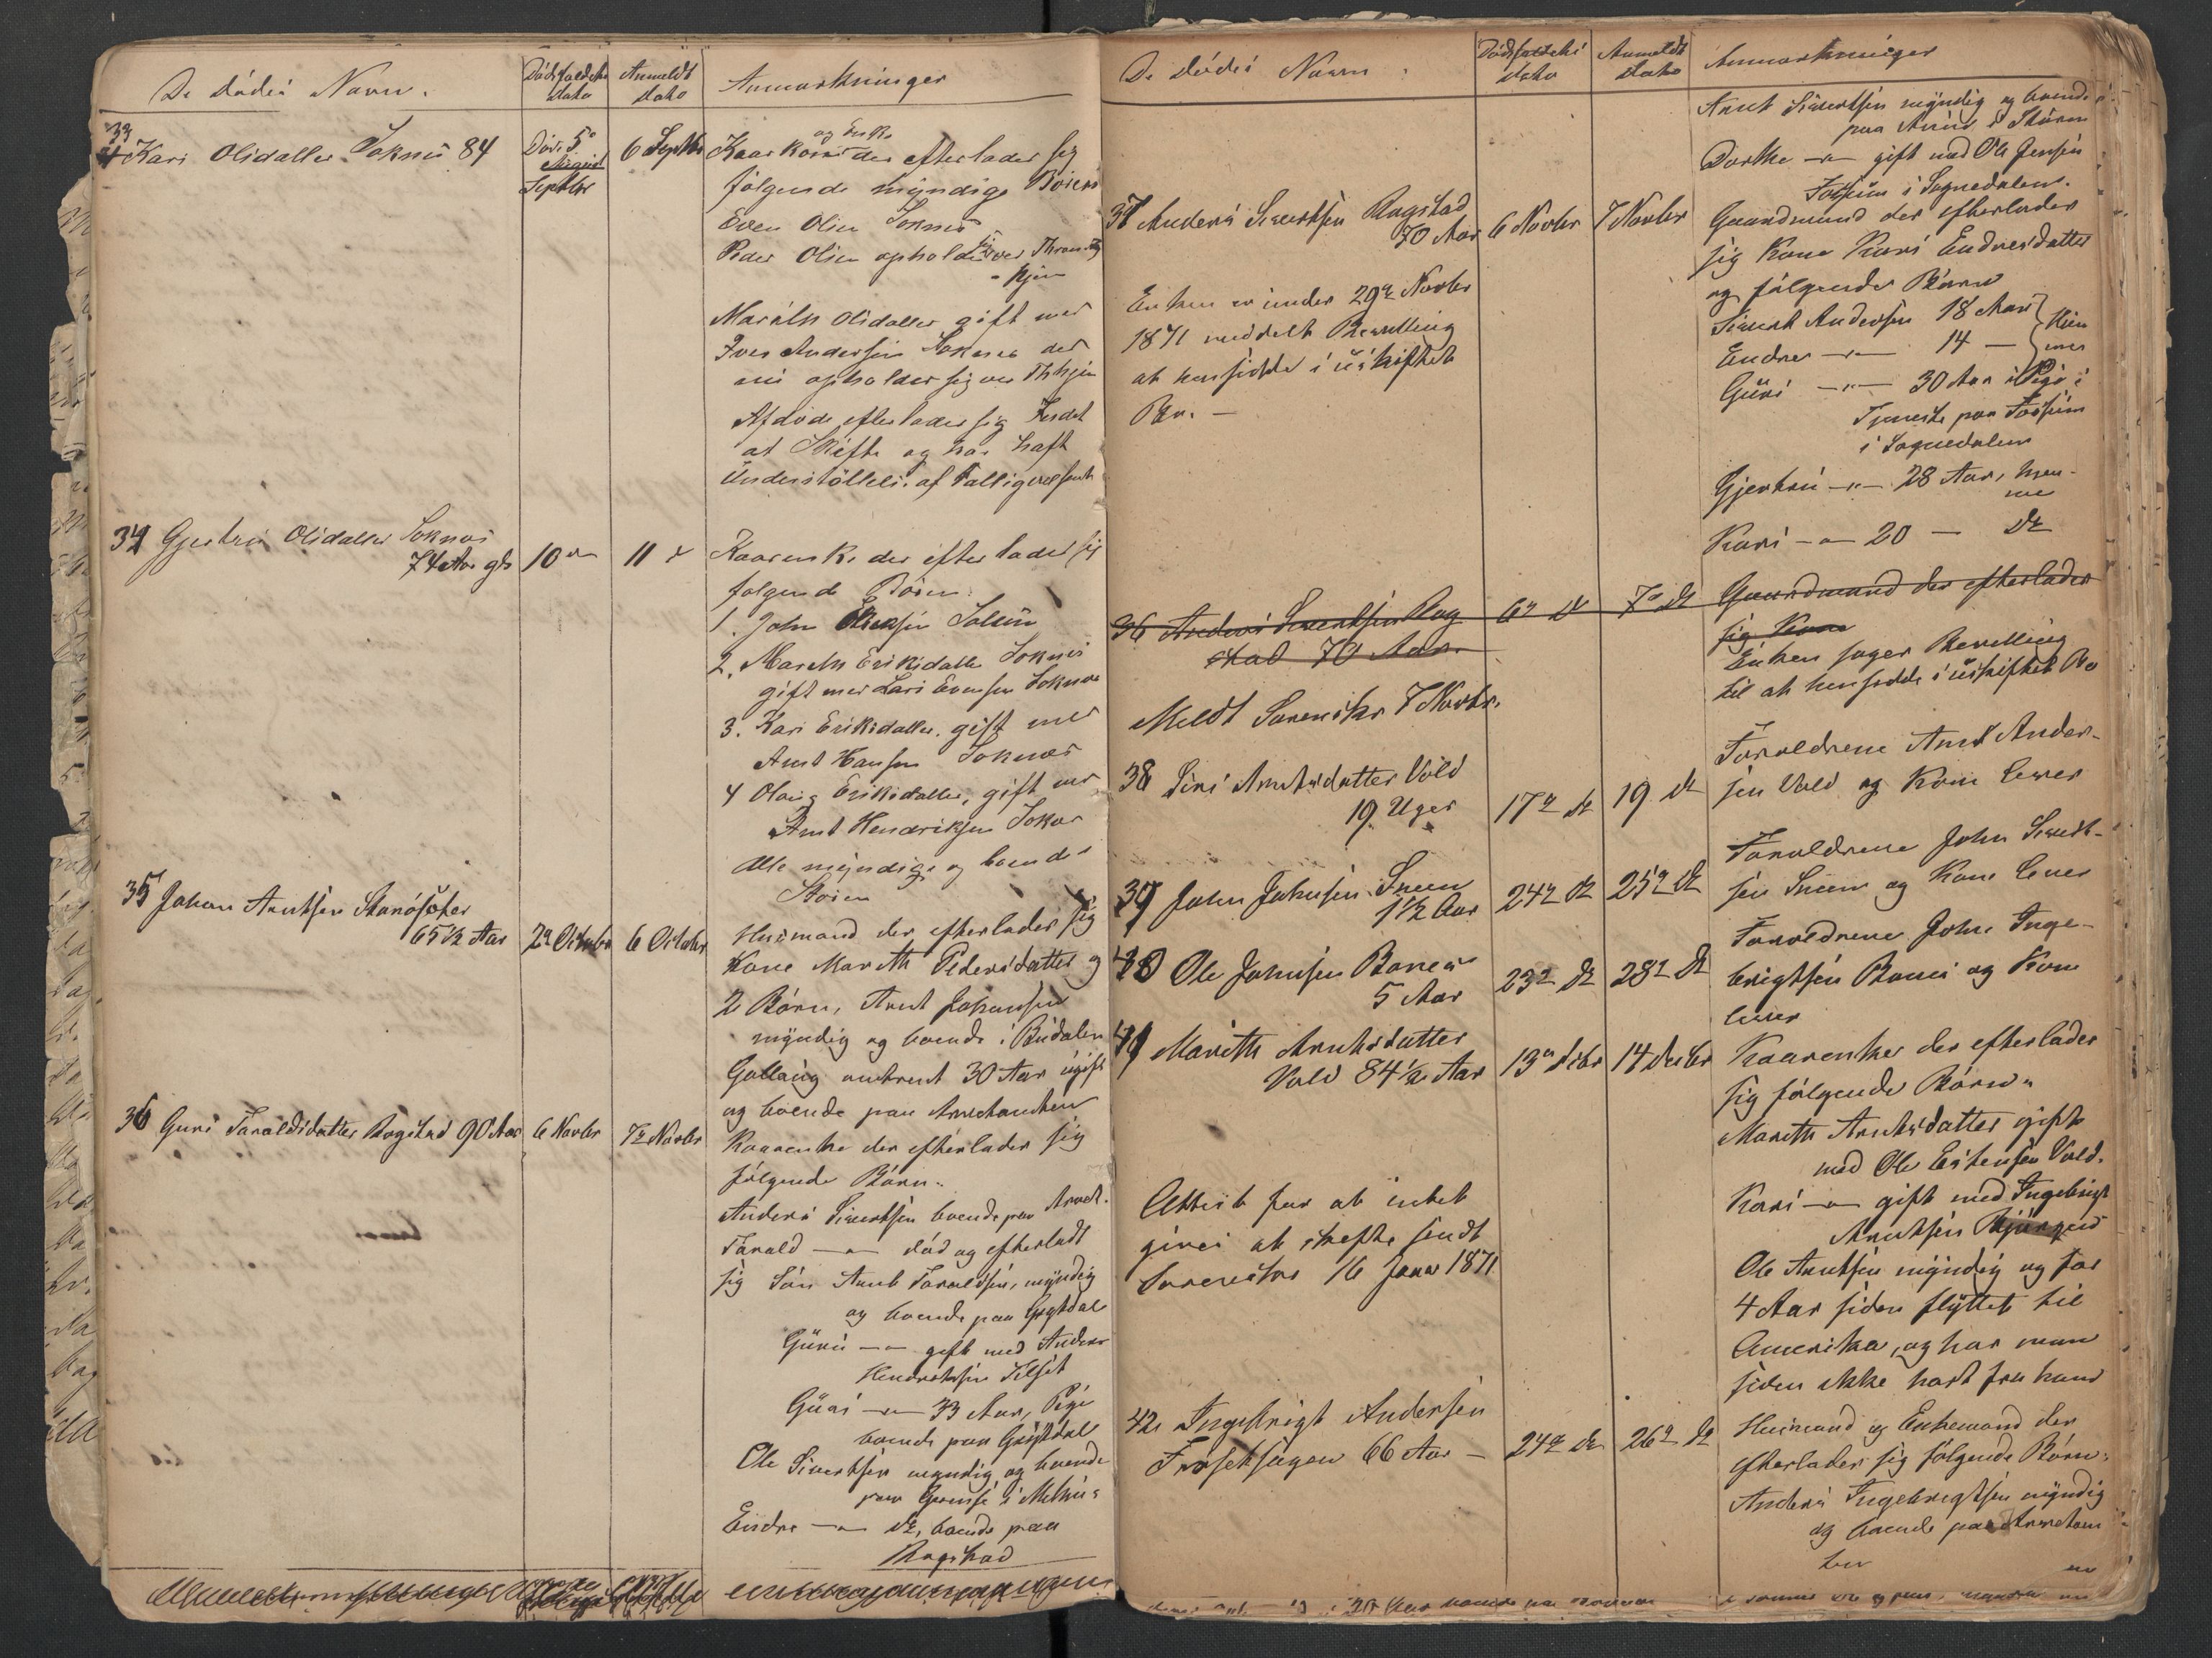 De dødes Navn.
Dødsfaldets Dato
Anmeldt Dato
Anmærkninger
33 Kari Olsdatter Soknes 84
Døde 5
August
Septbr
6 Septbr
og Enke
Kaarkone der efterlader sig
følgende myndige Børn
Even Olsen Soknes
Peder Olsen opholder sig ved Thrond
hjem
Marith Olsdatter gift med
Iver Andersen Soknes der
nu opholder sig ved Thhjem
Afdøde efterlader sig Intet
at Skifte og har haft
Understøttelse af Fattigvæsenet
34 Gjertrud Olsdatter Soknes
74 Aar gl
10 "
11 "
Kaarenke der efterlader sig
følgende Børn:
1. John Eriksen
2. Marith Eriksdatter Soknes
gift med Lars Evensen Soknes
3. Kari Eriksdatter gift med
Arnt Hansen Soknes
4 Olaug Eriksdatter, gift med
Arnt Hendriksen Soknes
Alle myndige og boende i
Støren
35 Johan Arntsen
65 1/2 Aar
2 October
6 October
Husmand der efterlader sig
Kone Marith Pedersdatter og
2 Børn, Arnt Johansen
myndig og boende i Budalen
Gollaug omtrent 30 Aar ugift
og boende paa
36 Guri Taraldsdatter Rogstad 90 Aar
6 Novbr
7 Novbr
Kaarenke der efterlader sig
følgende Børn:
Anders Sivertsen boende paa
Tarald — " — død og efterladt
sig Søn Arnt Taraldsen, myndig
og boende paa
Guru — " — gift med Anders
Hendriksen
Guri — " — 33 Aar, Pige
boende paa
Ole Sivertsen myndig og boende
paa i Melhus
Endre — " — do, boende paa
Rogstad
De dødes Navn.
Dødsfaldets Dato
Anmeldt Dato
Anmærkninger
Arnt Sivertsen myndig og boende
paa i Støren
Dorthe — " — gift med Ole Jensen
Fossum i Sognedalen.
37 Anders Sivertsen Rogstad
70 Aar
6 Novbr
7 Novbr
Gaardmand der efterlader
sig Kone Kari Endresdatter
og følgende Børn
Sivert Andersen 18 Aar
Endre — " — 14 —
Hjemme
Guri — " — 30 Aar Pige i
Tjeneste paa Fossum
i Sognedalen
Gjertru — " — 28 Aar, hjem-
me
Kari — " — 20 — do
Enken er under 29 Novbr
1871 meddelt Bevilling
at hensidde i uskiftet
Bo. —
36 Anders Sivertsen Rog
stad 70 Aar.
6 do
7 do
Gaardmand der efterlader
sig Kone
Enken søger Bevilling
til at hensidde i uskiftet Bo
Meldt Sorenskr 7 Novbr.
38 Siri Arntsdatter Vold
19 Uger
17 do
19 do
Foræeldrene Arnt Ander-
sen Vold og Kone lever
39 John Johnsen Sneen
1 1/2 Aar
24 do
25 do
Forældrene John Sivert-
sen Sneen og Kone lever
40 Ole Johnsen Bones
5 Aar
23 do
28 do
Forældrene John Inge-
brigtsen Bones og Kone
lever
41 Marith Arntsdatter
Vold 84 1/2 Aar
13 Debr
14 Decbr
Kaarenke der efterlader
sig følgende Børn:
Marith Arntsdatter gift
med Ole Estensen Vold.
Kari — " — gift med Ingebrigt
Arntsen
Ole Arntsen myndig og for
4 Aar siden flyttet til
Amerika, og har man
siden ikke hørt fra ham
Attest for at intet
gives at skifte sendt
Sorenskr 16 Janr 1871
42 Ingebrigt Andersen
66 Aar —
24 do
26 do
Husmand og Enkemand der
efterlader sig følgende Børn:
Anders Ingebrigtsen myndig
og boende paa